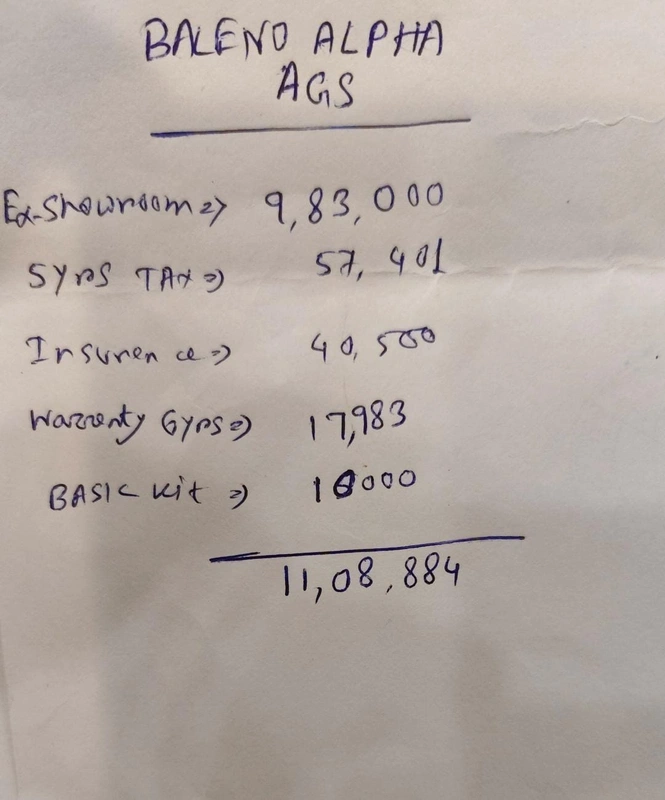 BALENO ALPHA
AGS
Ex-Showroom => 9,83,000
5yrs TAx => 57,401
Insuren ce => 40,500
Warrenty 6yrs => 17,983
BASIC Kit => 10000
11,08,884